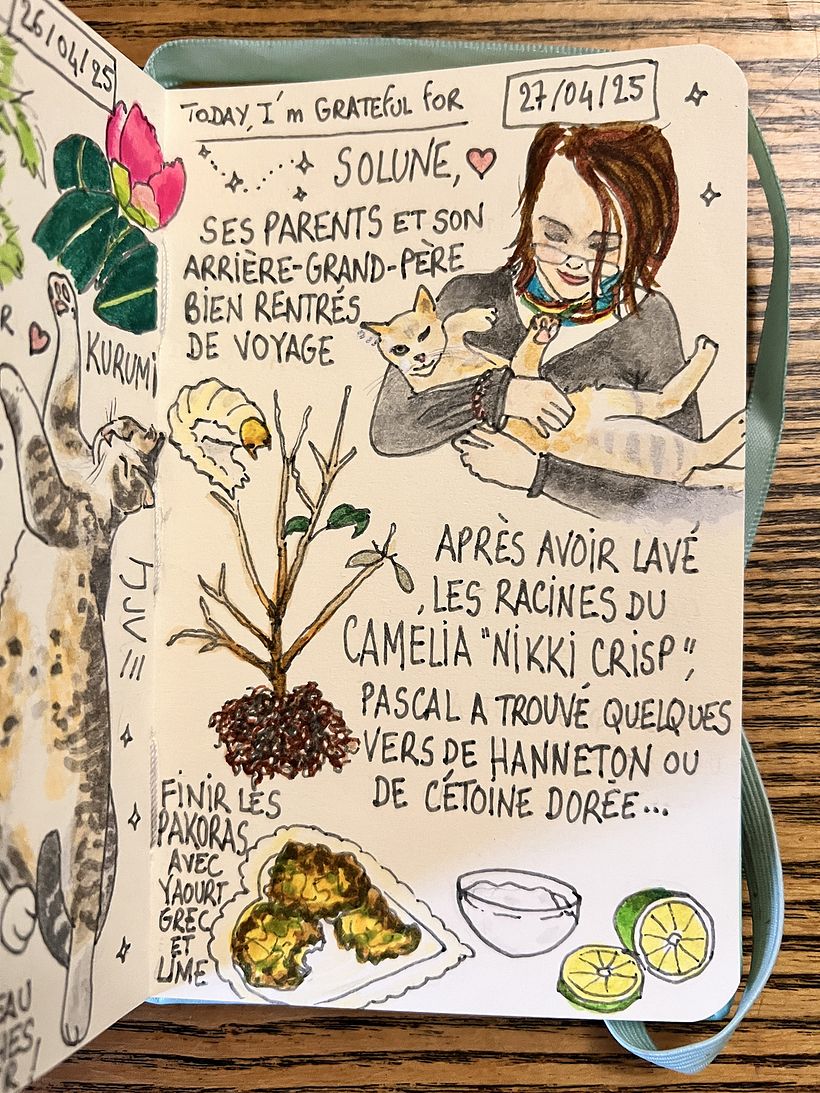 26/04/25
KURUMI
TODAY, I'm GRATEFUL FOR
27/04/25
SOLUNE,
SES PARENTS ET SON
ARRIÈRE-GRAND-PÈRE
BIEN RENTRÉS
DE VOYAGE
APRÈS AVOIR LAVÉ
LES RACINES DU
CAMELIA "NIKKI CRISP",
PASCAL A TROUVÉ QUELQUES
VERS DE HANNETON OU
DE CÉTOINE DORÉE...
FINIR LES
PAKORAS
AVEC
YAOURT
GREC
ET
LIME